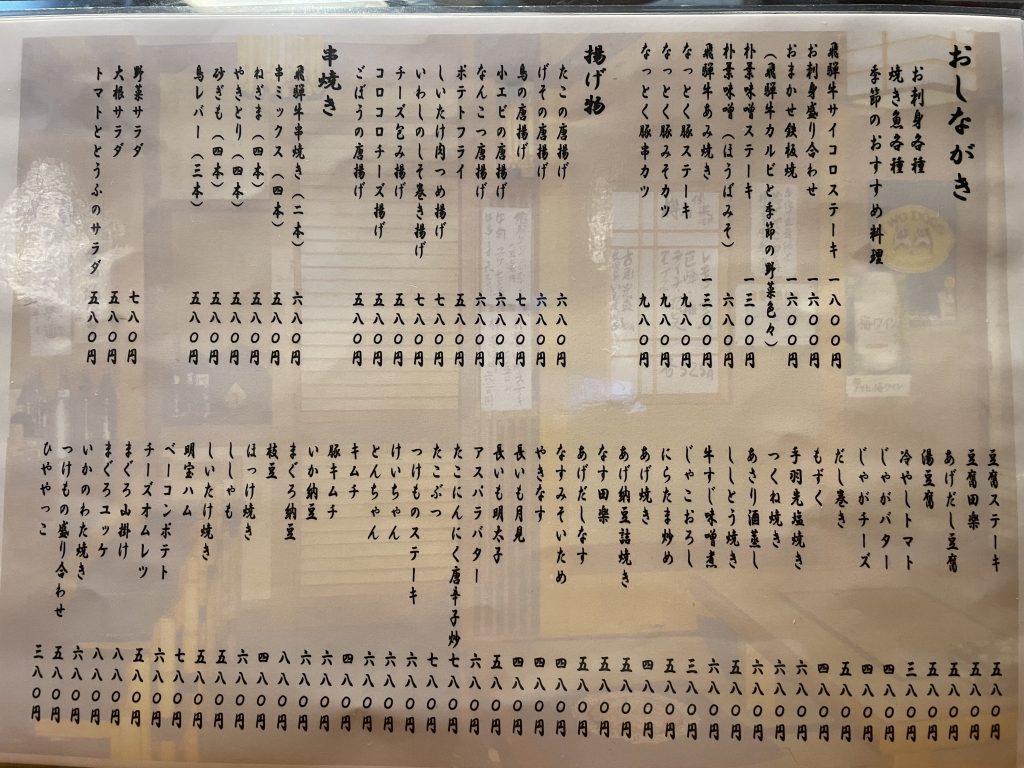 おしながき
お刺身各種
焼き魚各種
季節のおすすめ料理
飛騨牛サイコロステーキ 一八〇〇円
お刺身盛り合わせ 一六〇〇円
おまかせ鉄板焼 一六〇〇円
(飛騨牛カルビと季節の野菜色々)
朴葉味噌ステーキ 一三〇〇円
朴葉味噌(ほうばみそ) 六八〇円
飛騨牛あみ焼き 一三〇〇円
なっとく豚ステーキ 九八〇円
なっとく豚みそカツ 九八〇円
なっとく豚串カツ 九八〇円
揚げ物
たこの唐揚げ 六八〇円
げその唐揚げ 六八〇円
鳥の唐揚げ 七八〇円
小エビの唐揚げ 六八〇円
なんこつ唐揚げ 六八〇円
ポテトフライ 五八〇円
しいたけ肉つめ揚げ 七八〇円
いわしのしそ巻き揚げ 七八〇円
チーズ包み揚げ 五八〇円
コロコロチーズ揚げ 五八〇円
ごぼうの唐揚げ 五八〇円
串焼き
飛騨牛串焼き(二本) 六八〇円
串ミックス(四本) 五八〇円
ねぎま(四本) 五八〇円
やきとり(四本) 五八〇円
砂ぎも(四本) 五八〇円
鳥レバー(三本) 五八〇円
野菜サラダ 七八〇円
大根サラダ 五八〇円
トマトととうふのサラダ 五八〇円
豆腐ステーキ 五八〇円
豆腐田楽 五八〇円
あげだし豆腐 五八〇円
湯豆腐 五八〇円
冷やしトマト 三八〇円
じゃがバター 四八〇円
じゃがチーズ 四八〇円
だし巻き 五八〇円
もずく 四八〇円
手羽先塩焼き 六八〇円
つくね焼き 六八〇円
あさり酒蒸し 六八〇円
ししとう焼き 五八〇円
牛すじ味噌煮 六八〇円
じゃこおろし 三八〇円
にらたま炒め 五八〇円
あげ焼き 四八〇円
あげ納豆詰焼き 五八〇円
なす田楽 五八〇円
あげだしなす 五八〇円
なすみそいため 四八〇円
やきなす 四八〇円
長いも月見 四八〇円
長いも明太子 五八〇円
アスパラバター 六八〇円
たこにんにく唐辛子炒 七八〇円
たこぶつ 七八〇円
つけものステーキ 六八〇円
けいちゃん 六八〇円
とんちゃん 六八〇円
キムチ 四八〇円
豚キムチ 六八〇円
いか納豆 六八〇円
まぐろ納豆 八八〇円
枝豆 四八〇円
ほっけ焼き 六八〇円
ししゃも 五八〇円
しいたけ焼き 五八〇円
明宝ハム 七八〇円
ベーコンポテト 六八〇円
チーズオムレツ 五八〇円
まぐろ山掛け 八八〇円
まぐろユッケ 八八〇円
いかのわた焼き 六八〇円
つけもの盛り合わせ 五八〇円
ひややっこ 三八〇円